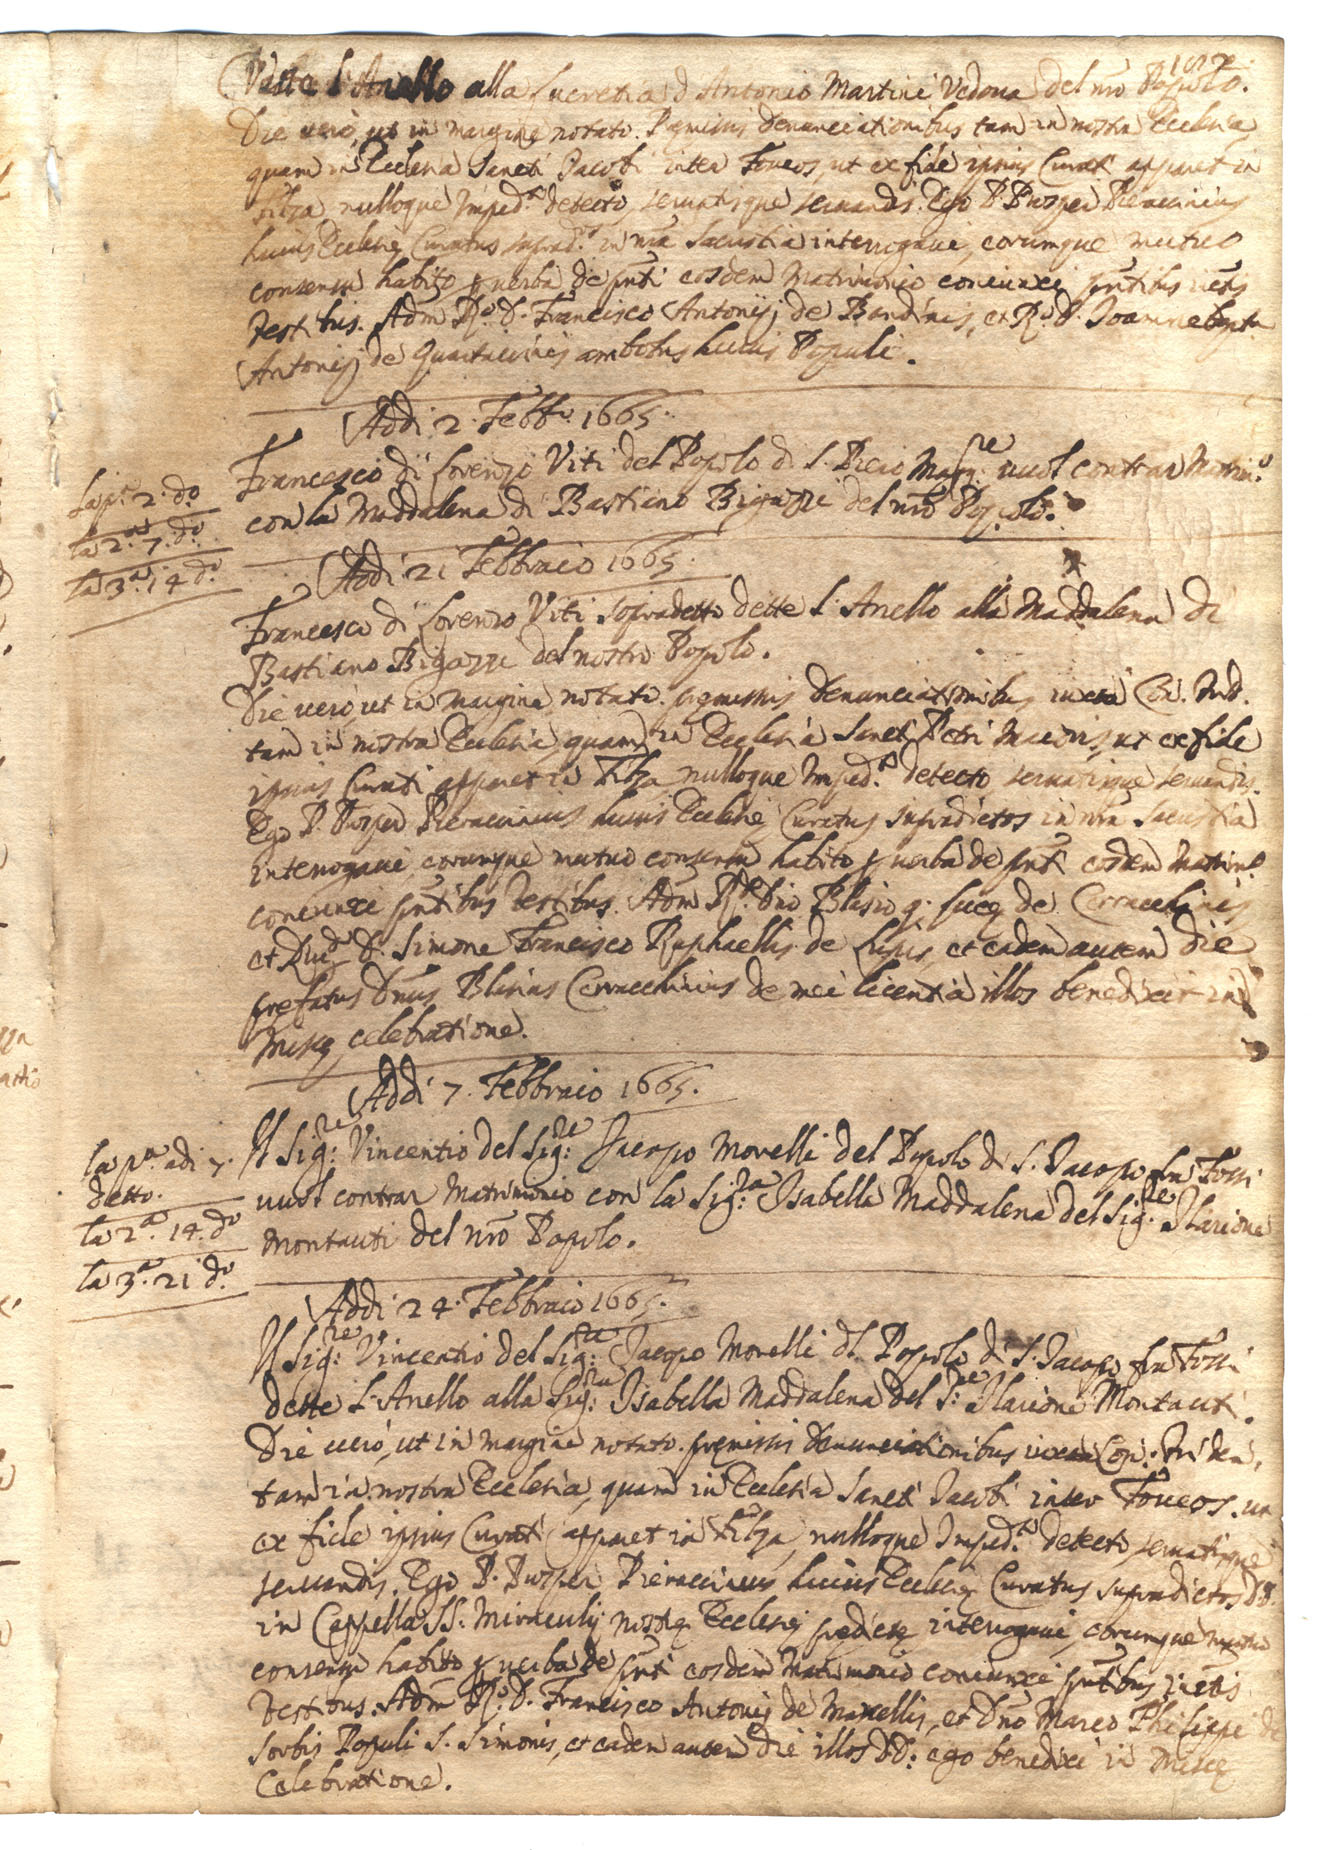 187.
l'Anello alla Lucretia d Antonio Martini Vedova del nrõ Popolo.
Die uero, ut in margine notato. Pręmissis denunciationibus tam in nostra Ecclesia
quam in Ecclesia Sancti Jacobi inter Foueos, ut ex fide ipsius Curati apparet in
filza, nulloque Imped.to detecto, seruatisque seruandis. Ego P. Prosper Pieraccinius
huius Ecclesię Curatus suprad.os in nrã Sacristia interrogaui, eorumque mutuo
consensu habito p uerba de pñti eosdem Matrimonio coniunxi pñtibus
testibus. Adm R.do D. Francisco Antonij de Bandinis, et R.do D. Joanne Bapta
Antonij de ambobus huius Populi.
Addi 2. Febb.o 1665.
Francesco di Lorenzo Viti del Popolo di S. Piero Magg.re uuol contrar Matrim.o
con la Maddalena di Bastiano Bigazzi del nrõ Popolo.
La p.a 2. d.o
la 2.a 7. d.o
la 3.a 14 d.o
Addi 21 Febbraio 1665.
Francesco di Lorenzo Viti sopradetto dette l'Anello alla Maddalena di
Bastiano Bigazzi del nostro Popolo.
Die uero, ut in margine notato. pręmissis denunciationibus iuxta Con. Trid.
tam in nostra Ecclesia, quam in Ecclesia Sancti Petri Maioris, ut ex fide
ipsius Curati apparet in Filza, nulloque Imped.to detecto, seruatisque seruandis.
Ego P. Prosper Pieraccinius huius Ecclesię Curatus supradictos in nrã Sacristia
interrogaui, eorumque mutuo consensu habito p uerba de pñti eosdem Matrim.o
coniunxi pñtibus testibus. Adm R.do Dño Blasio q. de Cerracchinis
et D. Simone Francisco Raphaellis de Lupis, et eadem autem die
prefatus Dnus Blasius Cerracchinius de mei licentia illos benedixit in
Missę celebratione.
Addi 7. Febbraio 1665.
Il Sig:re Vincentio del Sig:re Jacopo Morelli del Popolo di S. Jacopo fra Fossi
uuol contrar Matrimonio con la Sig:ra Isabella Maddalena del Sig:re Ilarione
Montauti del nrõ Popolo.
la p.a adi 7.
detto.
la 2.a 14. d.o
la 3.a 21 d.o
Addi 24. Febbraio 1665.
Il Sig:re Vincentio del Sig:re Jacopo Morelli dl Popolo di S. Jacopo fra Fossi
dette l'Anello alla Sig:ra Isabella Maddalena del S:re Ilarione Montauti.
Die uero, ut in margine notato. pręmissis denunciationibus iuxta Con: Triden,
tam in nostra Ecclesia, quam in Ecclesia Sancti Jacobi inter Foueos. ut
ex fide ipsius Curati apparet in Filza, nulloque Imped.to detecto seruatisque
seruandis. Ego P. Prosper Pieraccinius huius Ecclesię Curatus supradictos DD.
in Cappella SS. Miraculi nostrę Ecclesię predictę interrogaui, eorumque mutuo
consensu habito p uerba de pñti eosdem Matrimonio coniunxi pñtibus
testibus. Adm R.do D. Francisco Antonij de Marcellis, et Dño Marco Philippi de
Sorbis Populi S. Simonis, et eadem autem die illos DD. ego benedixi in Missę
Celebratione.